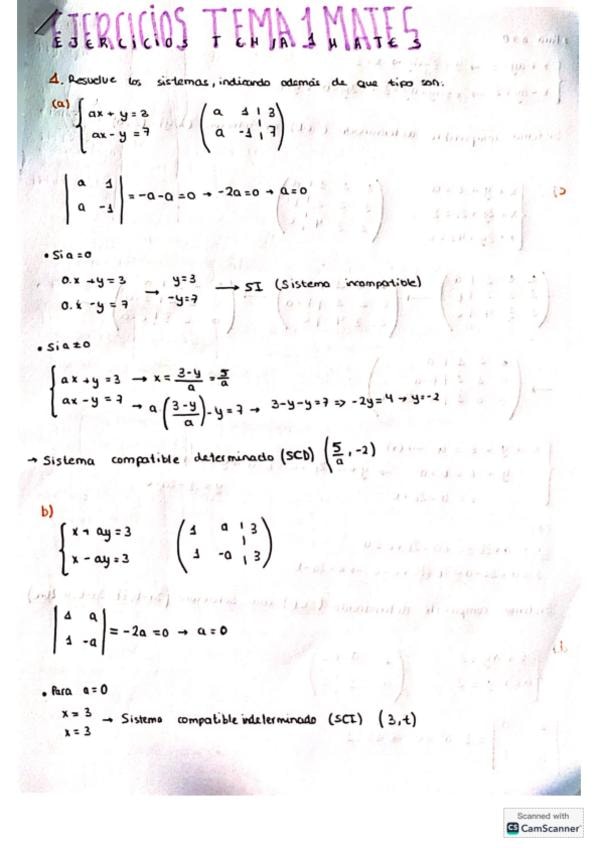 EJERCICIOS TEMA 1 MATES
EJERCICIOS TEMA 1 MATES
1. Resuelve los sistemas, indicando además de que tipo son:
(a) { ax + y = 3
ax - y = 7
( a 1 | 3
a -1 | 7 )
| a 1
a -1 | = -a-a = 0 → -2a=0 → a=0
• Si a=0
0.x + y = 3 → y=3 → SI (Sistema incompatible)
0.x - y = 7 -y=7
• Si a≠0
{ ax + y = 3 → x = 3-y/a = 5/a
ax - y = 7 → a(3-y/a) - y = 7 → 3-y-y=7 => -2y=4 → y=-2
→ Sistema compatible determinado (SCD) (5/a, -2)
b)
{ x + ay = 3
x - ay = 3
( 1 a | 3
1 -a | 3 )
| 1 a
1 -a | = -2a = 0 → a=0
• Para a=0
x = 3 → Sistema compatible indeterminado (SCI) (3,t)
x = 3
Scanned with
CS CamScanner